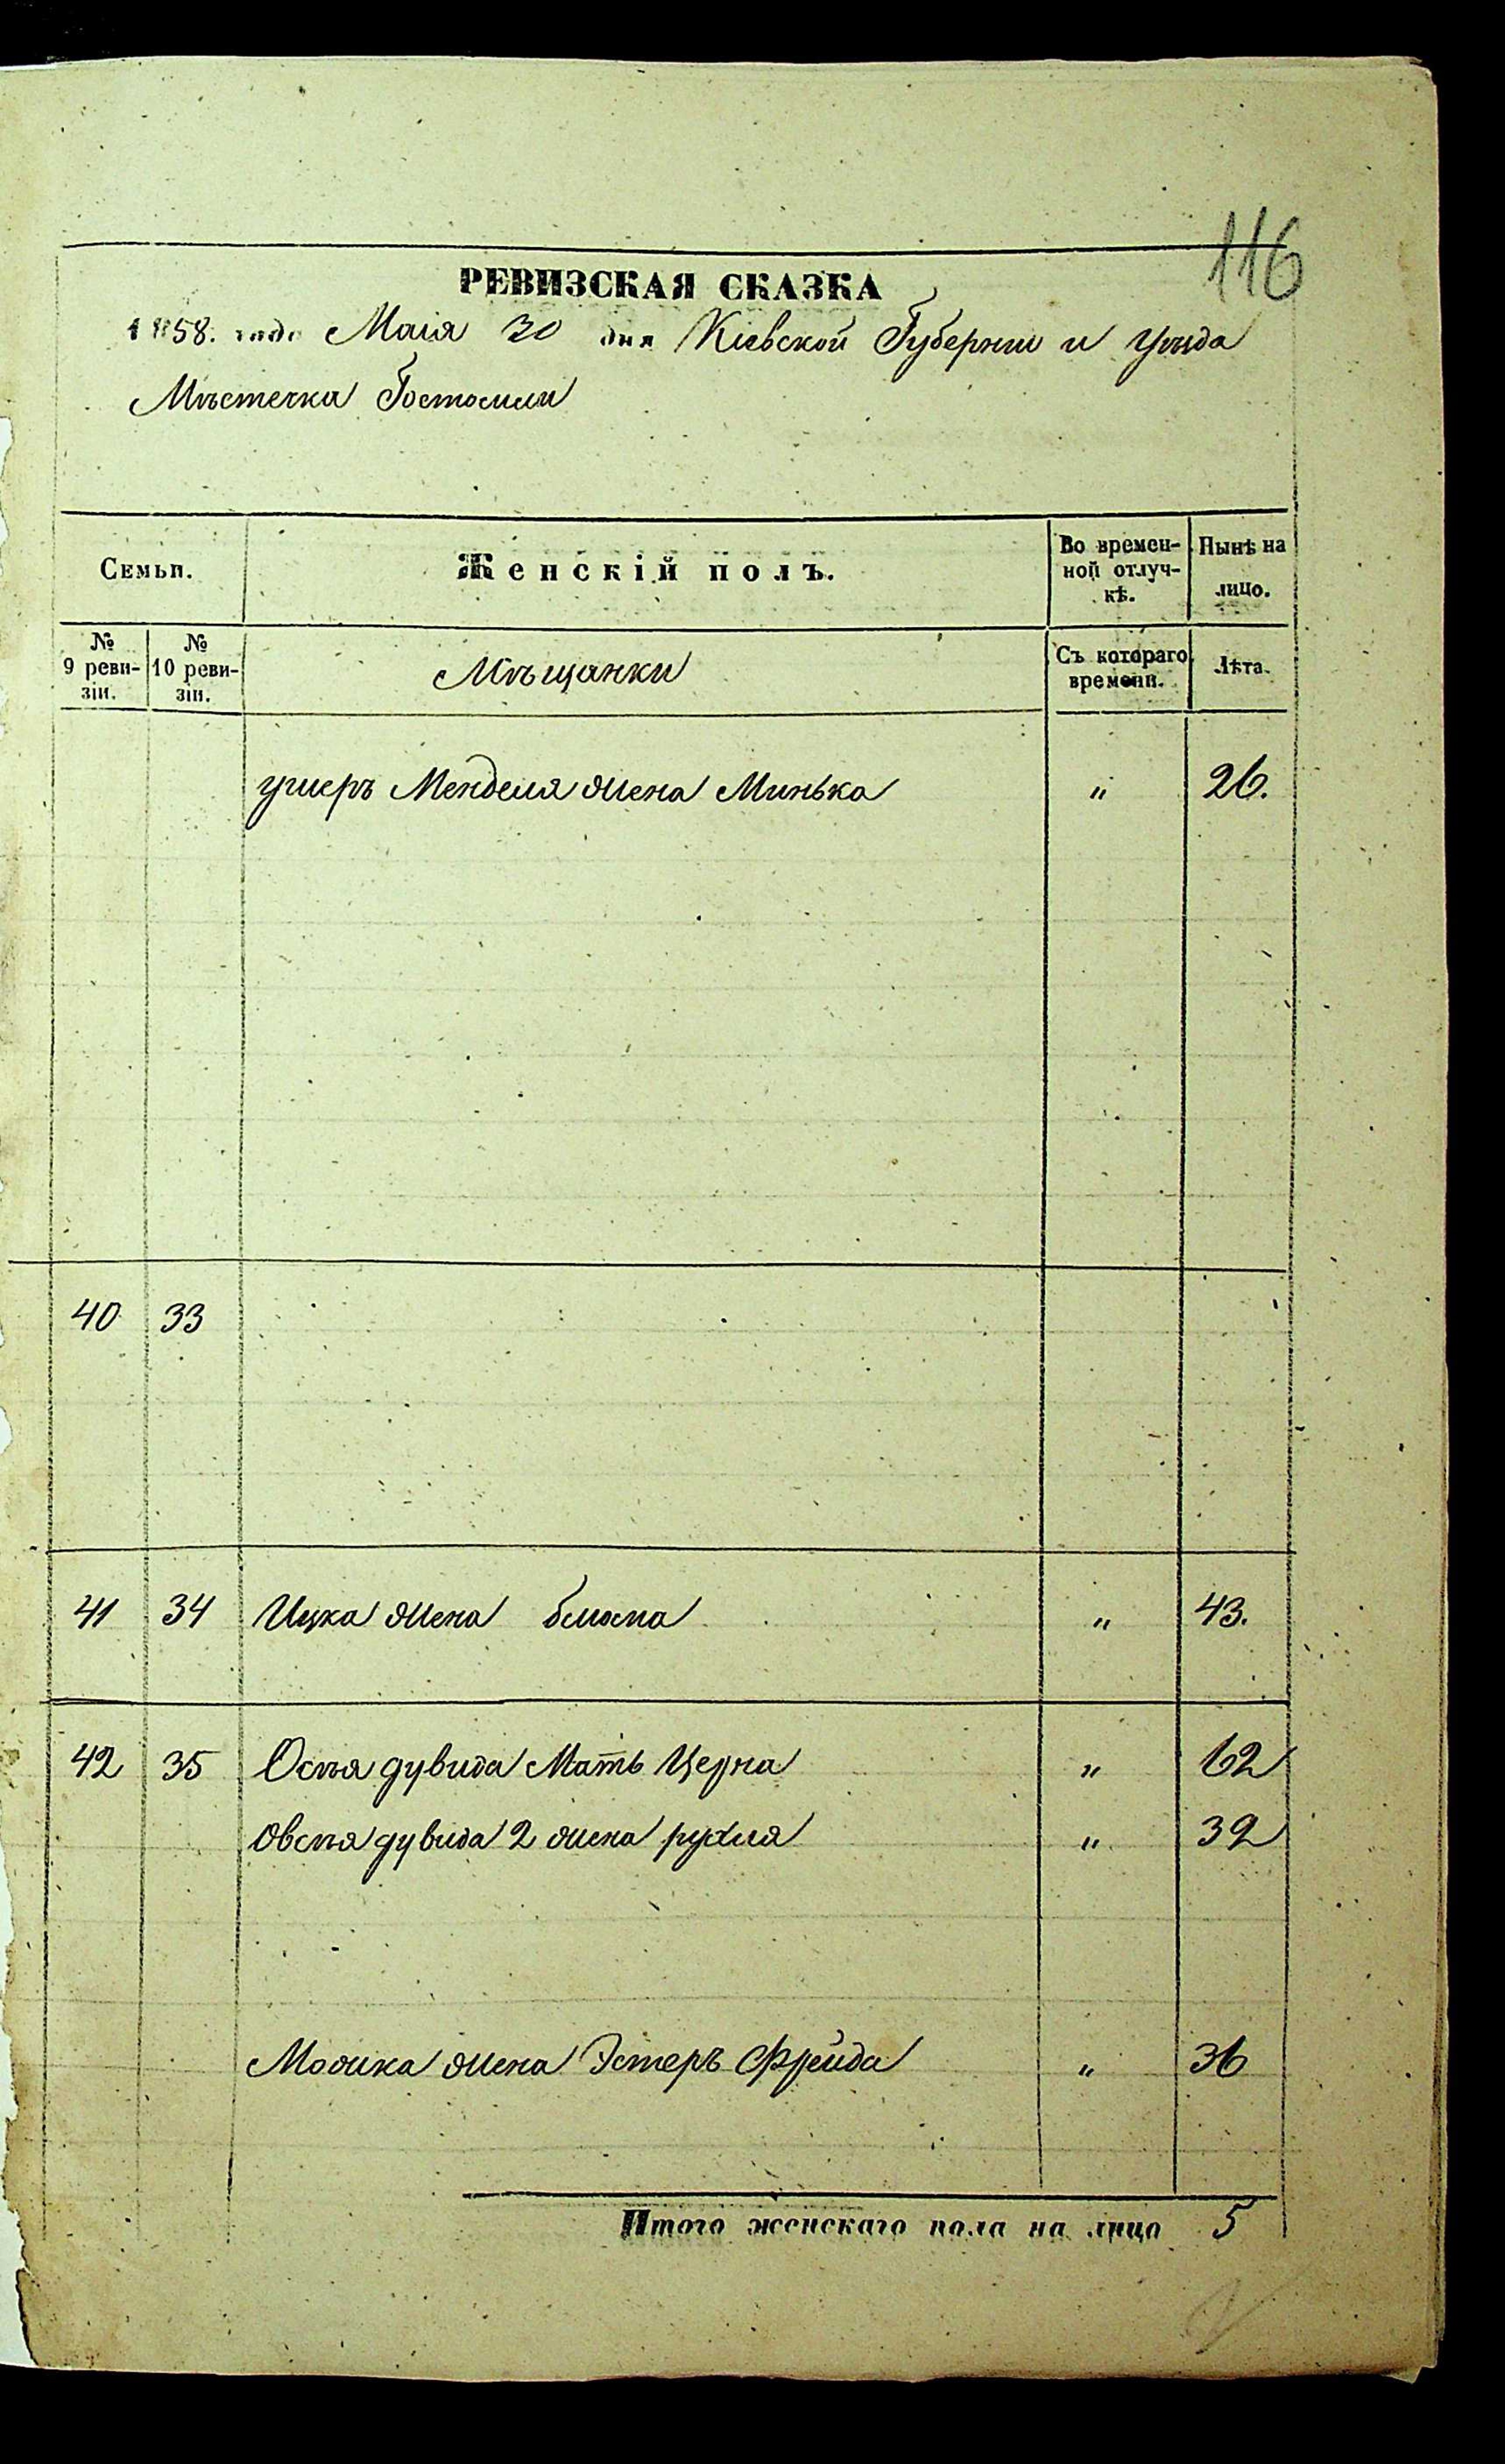 116
РЕВИЗСКАЯ СКАЗКА
1858. года Маія 30 дня Кіевской Губерніи и уѣзда
Мѣстечка Гостомли
Семьи.
Женскій полъ.
Во времен-
ной отлуч-
кѣ.
Нынѣ на
лицо.
№
9 реви-
зіи.
№
10 реви-
зіи.
Мѣщанки
Съ котораго
времени.
Лѣта.
Менделя жена Минька " 26.
40 33
41 34 Ицка жена блюма " 43.
42 35 дувида Мать Церна " 62
Овсѣя дувида 2 жена рухля " 32
Мошка жена Эстеръ Фрейда " 36
Итого женскаго пола на лицо 5